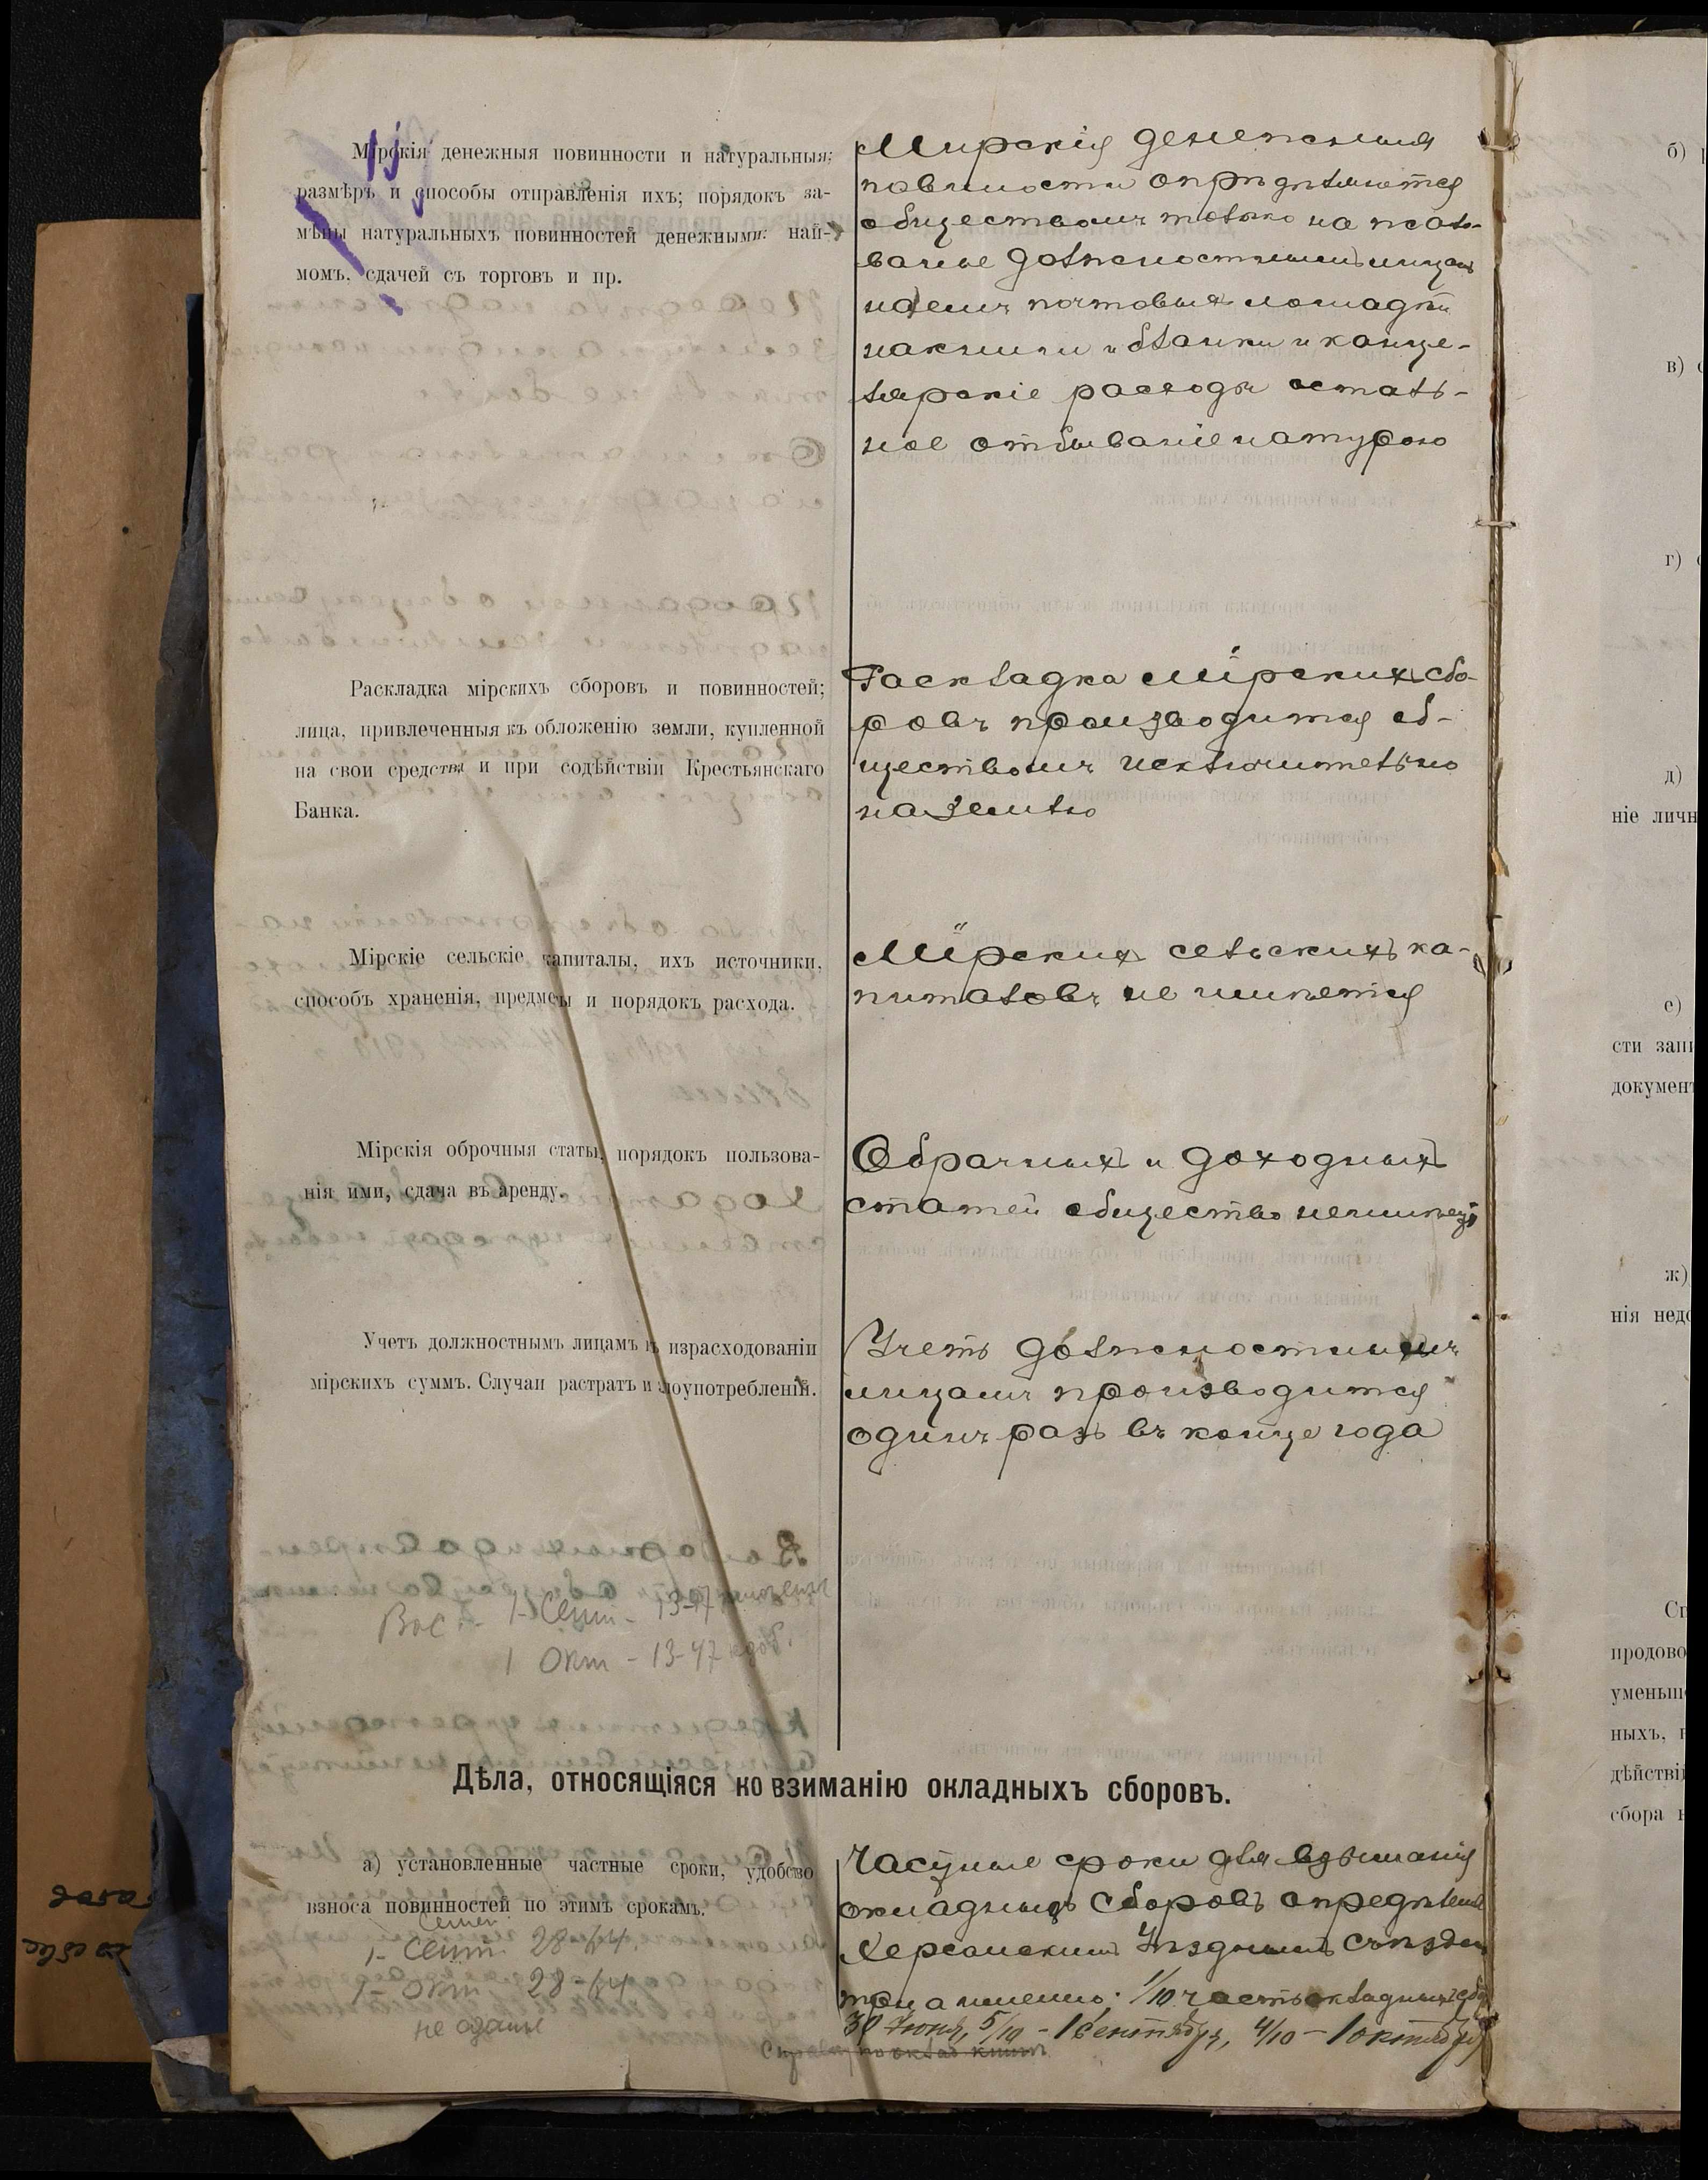 Мірскія денежныя повинности и натуральныя;
размѣръ и способы отправленія ихъ; порядокъ за-
мѣны натуральныхъ повинностей денежными: най-
момъ, сдачей съ торговъ и пр.
Мирскія денежныя
повиности опрѣдѣляются
обществомъ только на жало-
ванье должностнымъ лицамъ
наемъ почтовыя лошадѣй
на книги и бланки и канце-
лярскіе расходы осталь-
ное отбываніе натурою
Раскладка мірскихъ сборовъ и повинностей;
лица, привлеченныя къ обложенію земли, купленной
на свои средства и при содѣйствіи Крестьянскаго
Банка.
Раскладка мірскихъ сбо-
ровъ производится об-
ществомъ исключительно
на землю
Мірскіе сельскіе капиталы, ихъ источники,
способъ храненія, предметы и порядокъ расхода.
Мірскихъ сельскихъ ка-
питаловъ не имѣется
Мірскія оброчныя статьи, порядокъ пользова-
нія ими, сдача въ аренду.
Обрачныхъ и доходныхъ
статей общество неимѣетъ
Учетъ должностнымъ лицамъ въ израсходованіи
мірскихъ суммъ. Случаи растратъ и злоупотребленій.
Учетъ должностнымъ
лицамъ производится
одинъ разъ въ конце года
1- Сент - 13-47
1 Окт - 13-47
Дѣла, относящіяся ко взиманію окладныхъ сборовъ.
а) установленные частные сроки, удобство
взноса повинностей по этимъ срокамъ.
1- Сент. 28-64.
1- Окт 28-64
Частные сроки для взыманія
окладныхъ сборовъ опредѣлены
Херсонскимъ Уѣзднымъ Съѣздомъ
три а именно: 1/10 часть окладныхъ сбор
30 Іюня, 5/10 - 1 Сентября, 4/10 - 1 октября
б)
в)
г)
д)
ніе личн
е)
сти запи
документ
ж)
нія недо
Сп
продово
уменьше
ныхъ,
дѣйстві
сбора